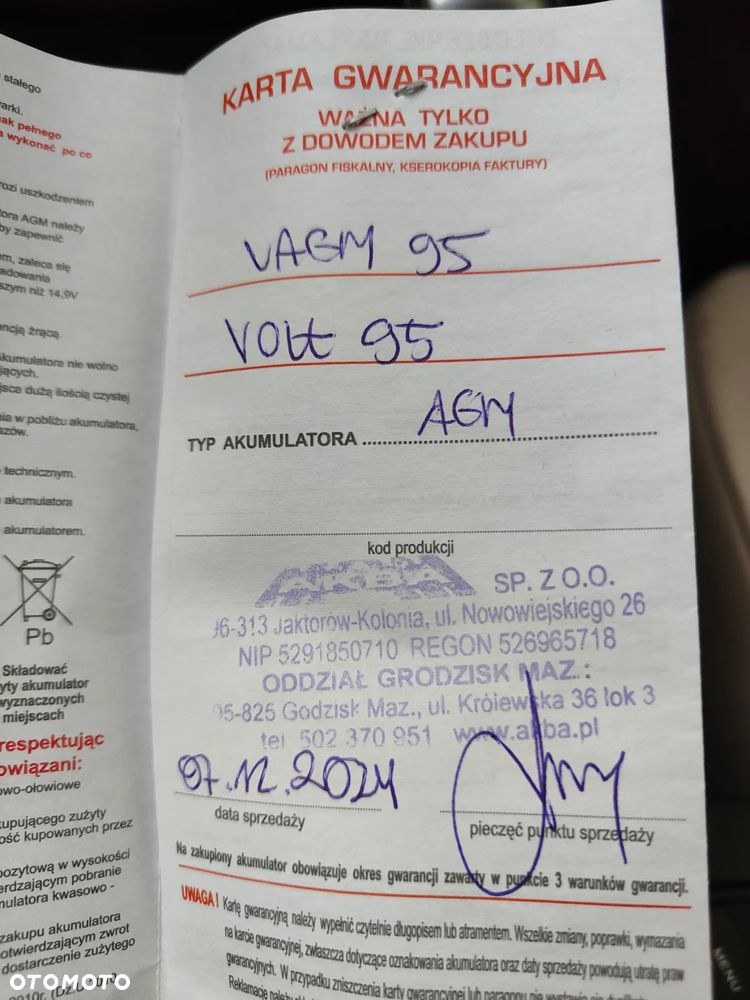 stałego
arki.
ak pełnego
a wykonać po co
rozi uszkodzeniem
tora AGM należy
by zapewnić
m, zaleca się
adowania
szym niż 14,9V
ncją żrącą.
kumulatora nie wolno
jących.
jsca dużą ilością czystej
ia w pobliżu akumulatora,
zów.
technicznym.
akumulatora
akumulatorem.
Pb
Składować
yty akumulator
wyznaczonych
miejscach
respektując
owiązani:
owo-ołowiowe
kupującego zużyty
ość kupowanych przez
pozytową w wysokości
erdzającym pobranie
mulatora kwasowo -
zakupu akumulatora
otwierdzającym zwrot
dostarczenie zużytego
KARTA GWARANCYJNA
WAŻNA TYLKO
Z DOWODEM ZAKUPU
(PARAGON FISKALNY, KSEROKOPIA FAKTURY)
VAGM 95
VOLT 95
AGM
TYP AKUMULATORA
kod produkcji
AKBA SP. Z O.O.
96-313 Jaktorów-Kolonia, ul. Nowowiejskiego 26
NIP 5291850710 REGON 526965718
ODDZIAŁ GRODZISK MAZ.:
05-825 Godzisk Maz., ul. Królewska 36 lok 3
tel 502 370 951 www.akba.pl
07.12.2024
data sprzedaży
pieczęć punktu sprzedaży
Na zakupiony akumulator obowiązuje okres gwarancji zawarty w punkcie 3 warunków gwarancji.
UWAGA! Kartę gwarancyjną należy wypełnić czytelnie długopisem lub atramentem. Wszelkie zmiany, poprawki, wymazania
na karcie gwarancyjnej, zwłaszcza dotyczące oznakowania akumulatora oraz daty sprzedaży powodują utratę praw
gwarancyjnych. W przypadku zniszczenia karty gwarancyjnej lub paragonu nie
Reklamację należy
MENU
OTOMOTO